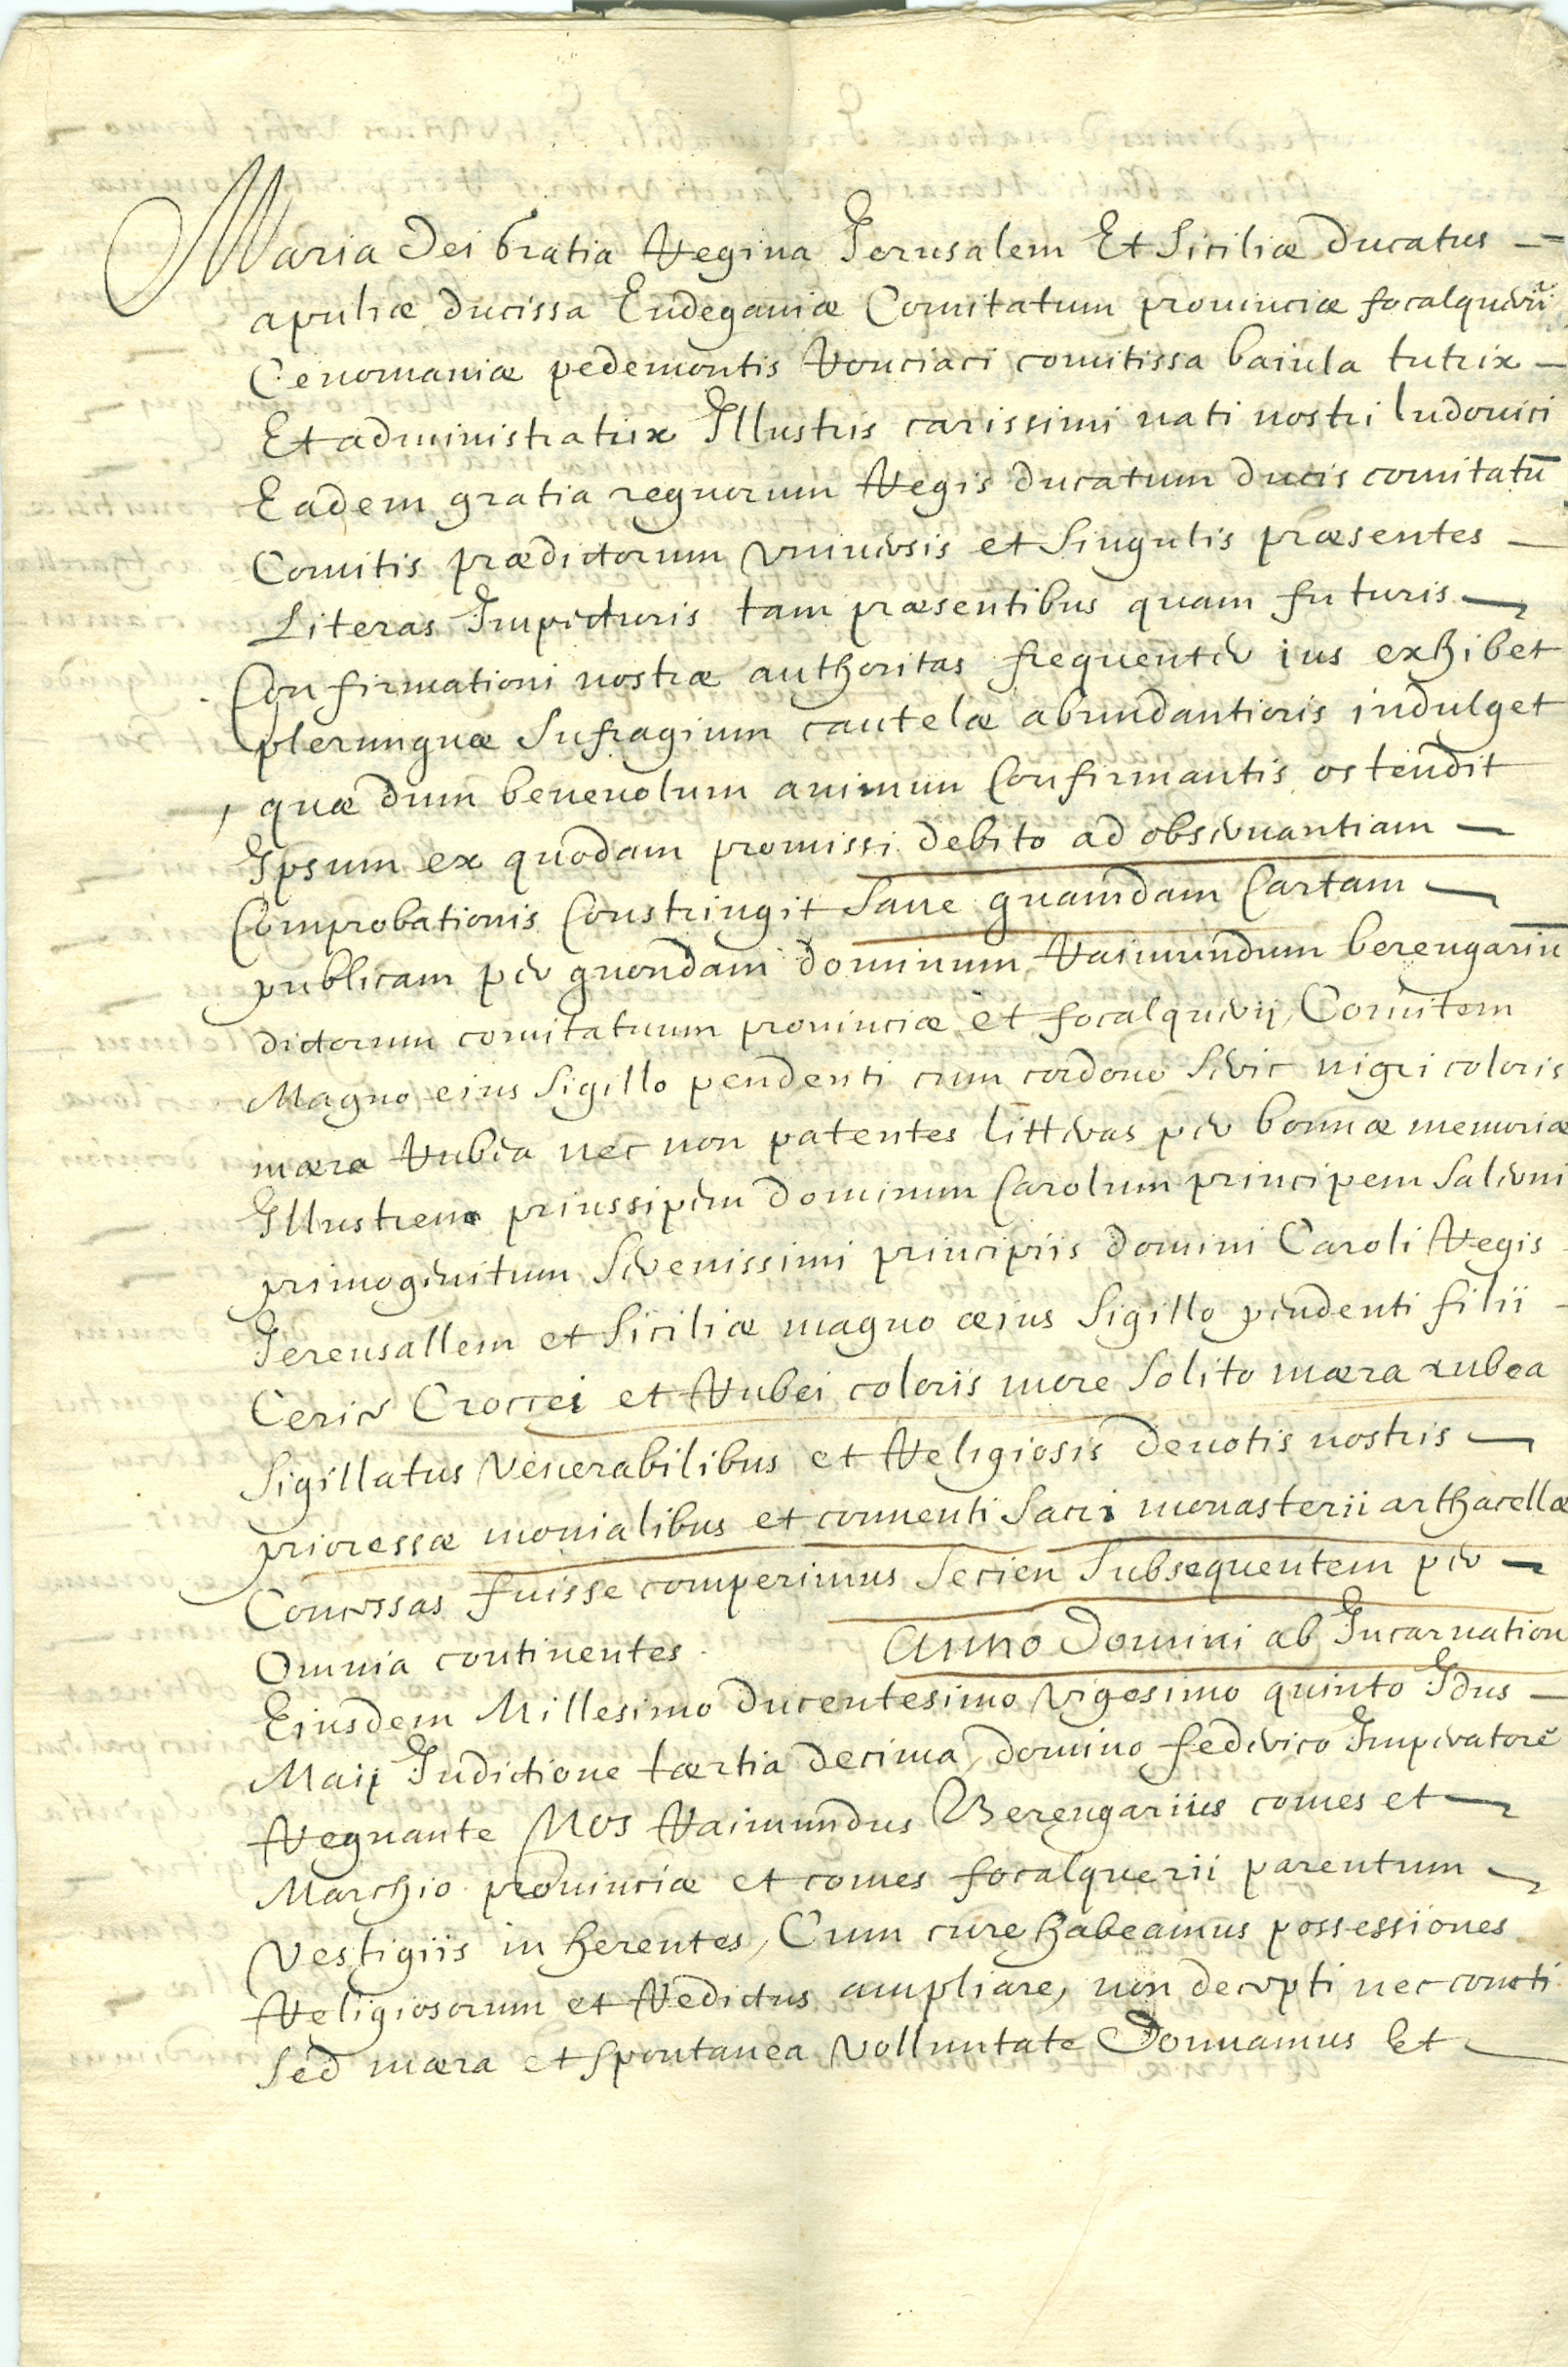 Maria Dei Gratia Regina Jerusalem Et Siciliæ Ducatus
apuliæ Ducissa Endeganiæ Comitatum prouinciæ focalquerii
Cenomaniæ pedemontis Ronciaci comitissa baiula tutrix
Et administratrix Illustris carissimi nati nostri ludouici
Eadem gratia regnorum Regis Ducatum Ducis comitatū
Comitis prædictorum vniuersis et Singulis præsentes
Literas Inspecturis tam præsentibus quam futuris
Confirmationi nostræ authoritas frequenter ius exhibet
plerunquæ Sufragium cautelæ abundantioris indulget
quæ dum beneuolum animum Confirmantis ostendit
Ipsum ex quodam promissi debito ad obseruantiam
Comprobationis Constringit Sane quamdam Cartam
publicam per quondam dominum Raimundum berengariū
dictorum comitatuum prouinciæ et focalquerij, Comitem
Magno eius Sigillo pendenti cum cordono Seric nigri coloris
mæra Rubea nec non patentes litteras per bonnæ memoriæ
Illustrem prinssipem Dominum Carolum principem Salerni
primogenitum Serenissimi principiis Domini Caroli Regis
Jereusallem et Siciliæ magno æius Sigillo pendenti filii
Ceric Croccei et Rubei coloris more Solito mæra rubea
Sigillatus Venerabilibus et Religiosis deuotis nostris
prioressæ monialibus et conuenti Sacri monasterii arthacellæ
Concessas fuisse comperimus Serien Subsequentem per
Omnia continentes. Anno Domini ab Incarnation
Eiusdem Millesimo Ducentesimo Vigesimo quinto Idus
Maij Indictione tærtia Decima, domino federico Imperatorē
Regnante Nos Raimundus Berengarius comes et
Marchio prouinciæ et comes focalquerii parentum
Vestigiis in herentes, Cum cure habeamus possessiones
Religiosorum et Redictus ampliare, non decepti nec coacti
Sed mæra et Spontanea Volluntate Donnamus Et